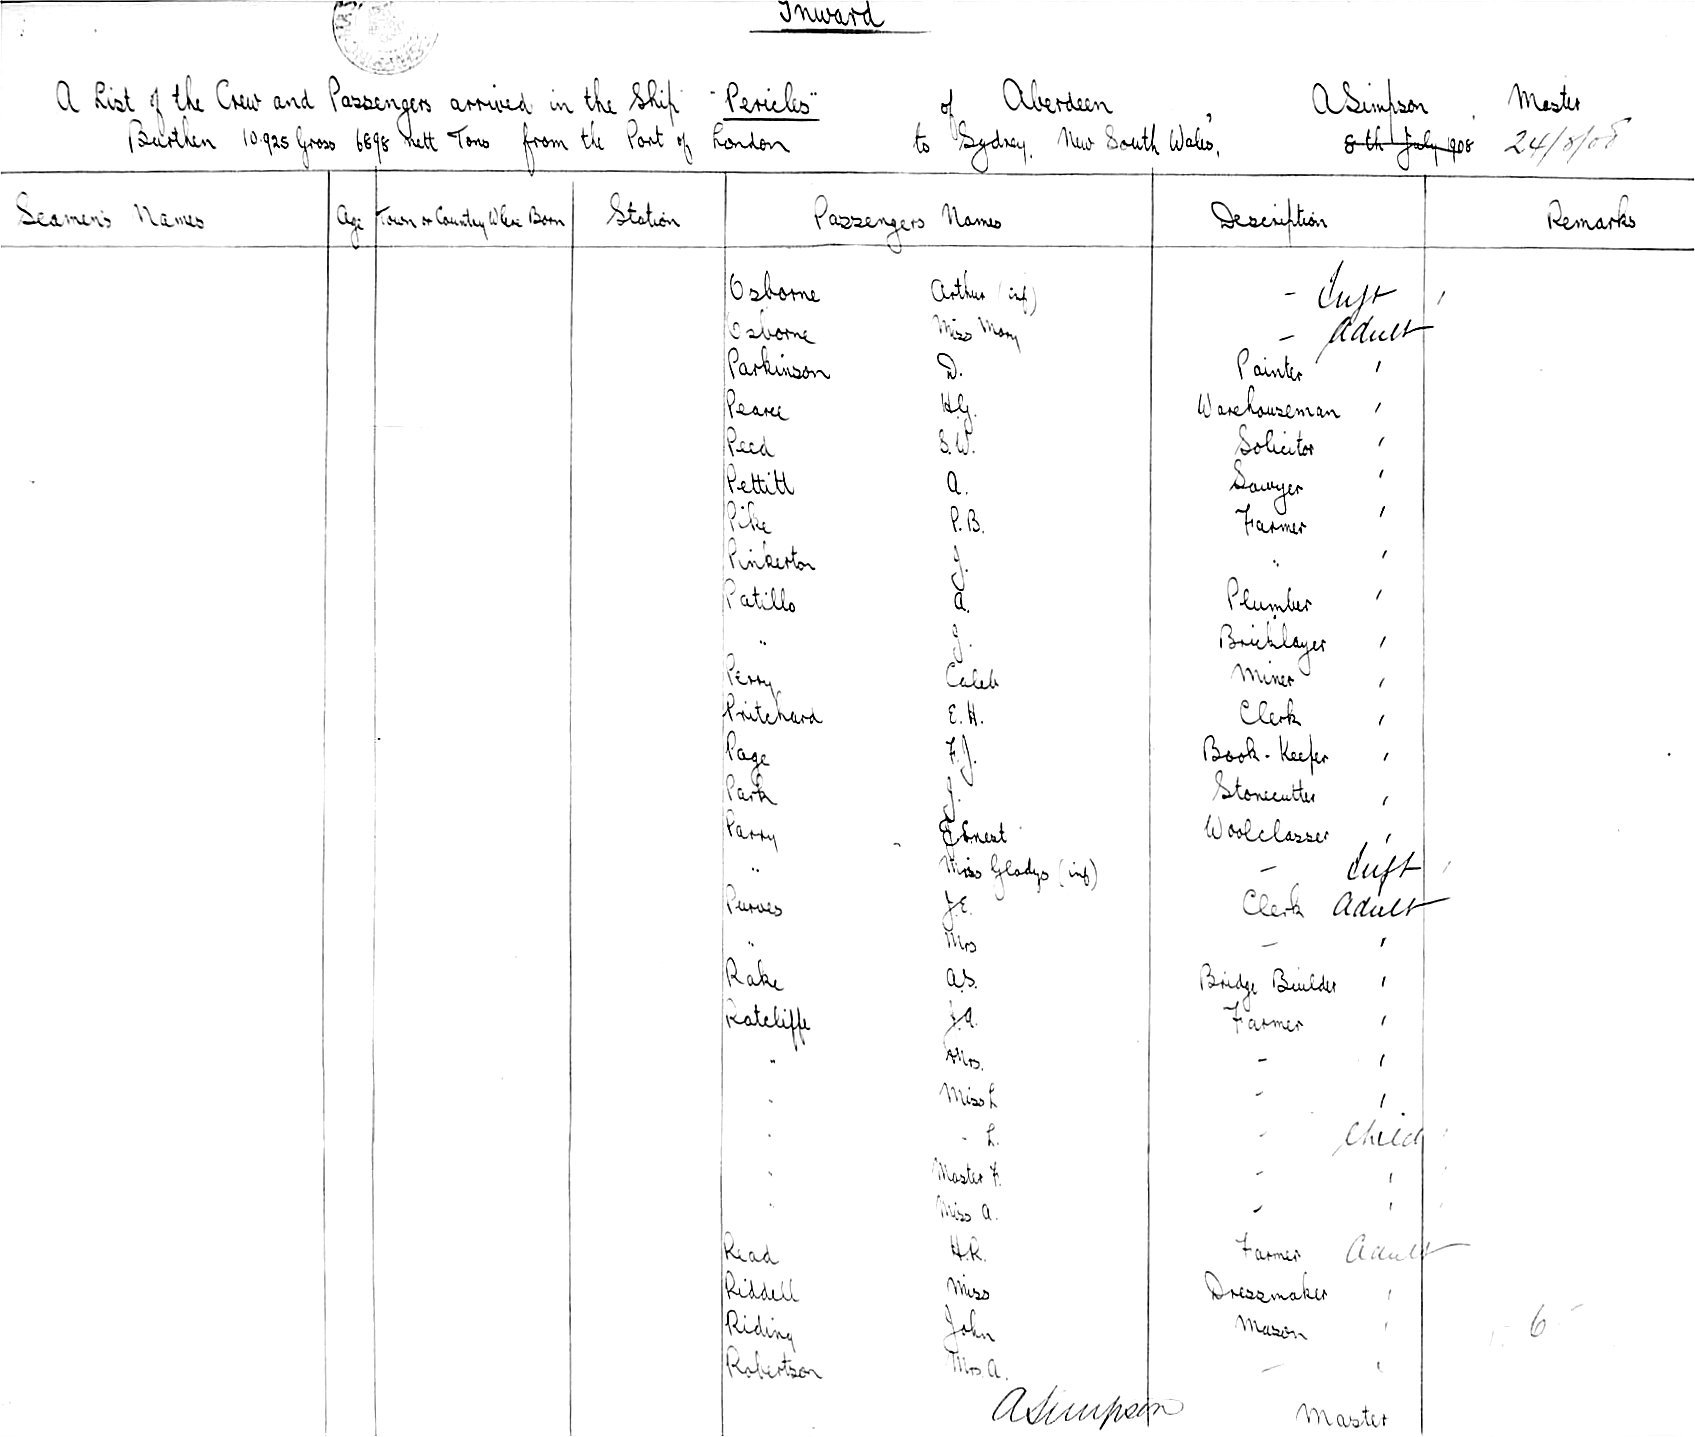 Inward
A List of the Crew and Passengers arrived in the Ship "Pericles" of Aberdeen A Simpson Master
Burthen 10.925 Gross 6898 nett Tons from the Port of London to Sydney, New South Wales, 8th July 1908 24/8/08
Seamen's Names Age Town or Country Where Born Station Passengers Names Description Remarks
Osborne Arthur (inf) - Inft '
Osborne Miss Mary - Adult
Parkinson D. Painter '
Pearce H.G. Warehouseman '
Peed S.W. Solicitor '
Pettitt A. Sawyer '
Pike P.B. Farmer '
Pinkerton J. " '
Patillo A. Plumber '
" J. Bricklayer '
Perry Caleb Miner '
Pritchard E.H. Clerk '
Page F.J. Book-Keeper '
Park J. Stonecutter '
Parry Ernest Woolclasser '
" Miss Gladys (inf) - Inft '
Purves J.E. Clerk Adult
" Mrs - '
Rake A.S. Bridge Builder '
Ratcliffe J.A. Farmer '
" Mrs. - '
" Miss L - '
" " L. - Child '
" Master F. - '
" Miss A. - '
Read H.R. Farmer Adult
Riddell Miss Dressmaker '
Riding John Mason ' 6
Robertson Mrs. A. - '
A Simpson Master